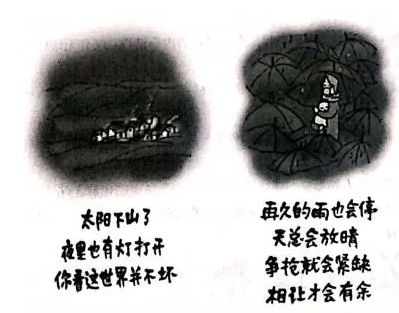 太阳下山了
夜里也有灯打开
你看这世界并不坏
再久的雨也会停
天总会放晴
争抢就会紧缺
相让才会有余